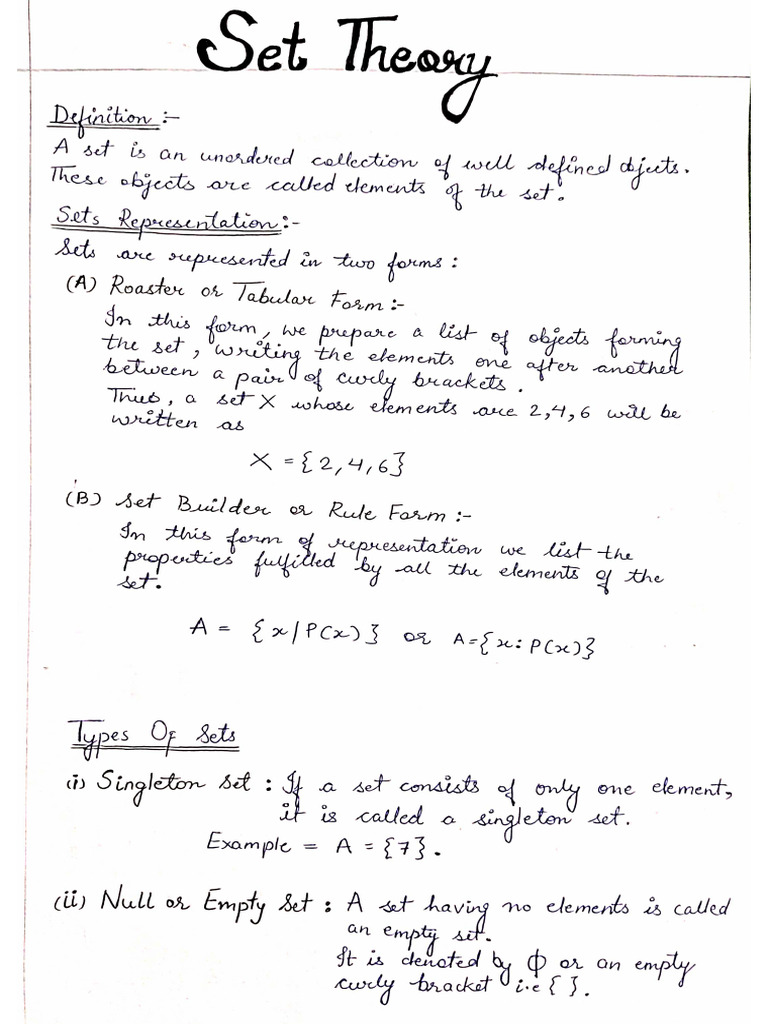 Set Theory
Definition :-
A set is an unordered collection of well defined objects.
These objects are called elements of the set.
Sets Representation :-
Sets are represented in two forms :
(A) Roaster or Tabular Form :-
In this form, we prepare a list of objects forming
the set, writing the elements one after another
between a pair of curly brackets.
Thus, a set X whose elements are 2,4,6 will be
written as
X = {2,4,6}
(B) Set Builder or Rule Form :-
In this form of representation we list the
properties fulfilled by all the elements of the
set.
A = {x/P(x)} or A={x: P(x)}
Types Of Sets
(i) Singleton Set : If a set consists of only one element,
it is called a singleton set.
Example = A = {7}.
(ii) Null or Empty Set : A set having no elements is called
an empty set.
It is denoted by ϕ or an empty
curly bracket i.e { }.